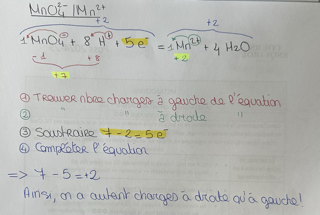 MnO4⁻ / Mn²⁺
+2 +2
1 MnO4⁻ + 8 H⁺ + 5 e⁻ = 1 Mn²⁺ + 4 H2O
1 +8 +2
+7
① Trouver nbre charges à gauche de l'équation
② " " à droite "
③ Soustraire 7 - 2 = 5 e⁻
④ Compléter l'équation
=> 7 - 5 = +2
Ainsi, on a autant charges à droite qu'à gauche!